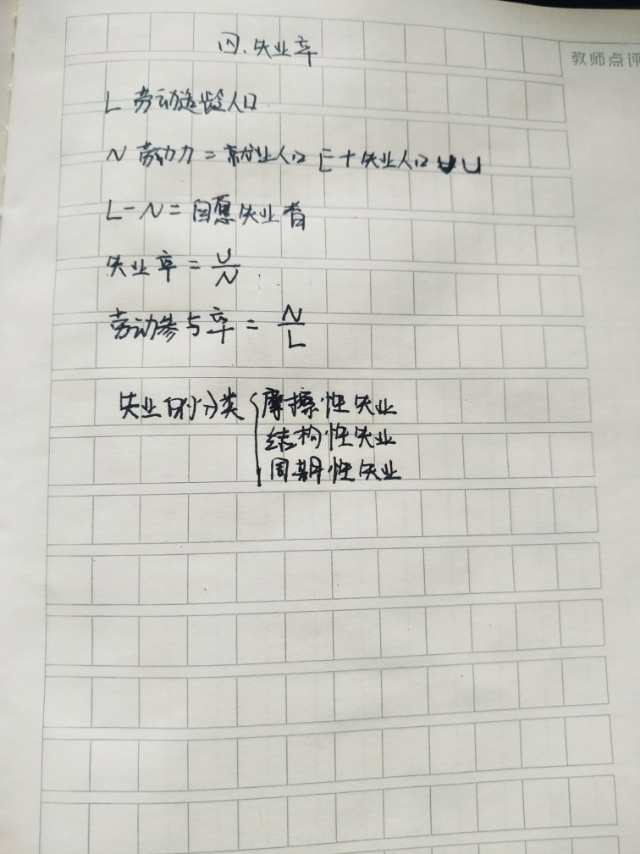 四.失业率
教师点评
L 劳动适龄人口
N 劳动力=就业人口E+失业人口U
L-N=自愿失业者
失业率=U/N
劳动参与率=N/L
失业的分类{摩擦性失业
结构性失业
周期性失业